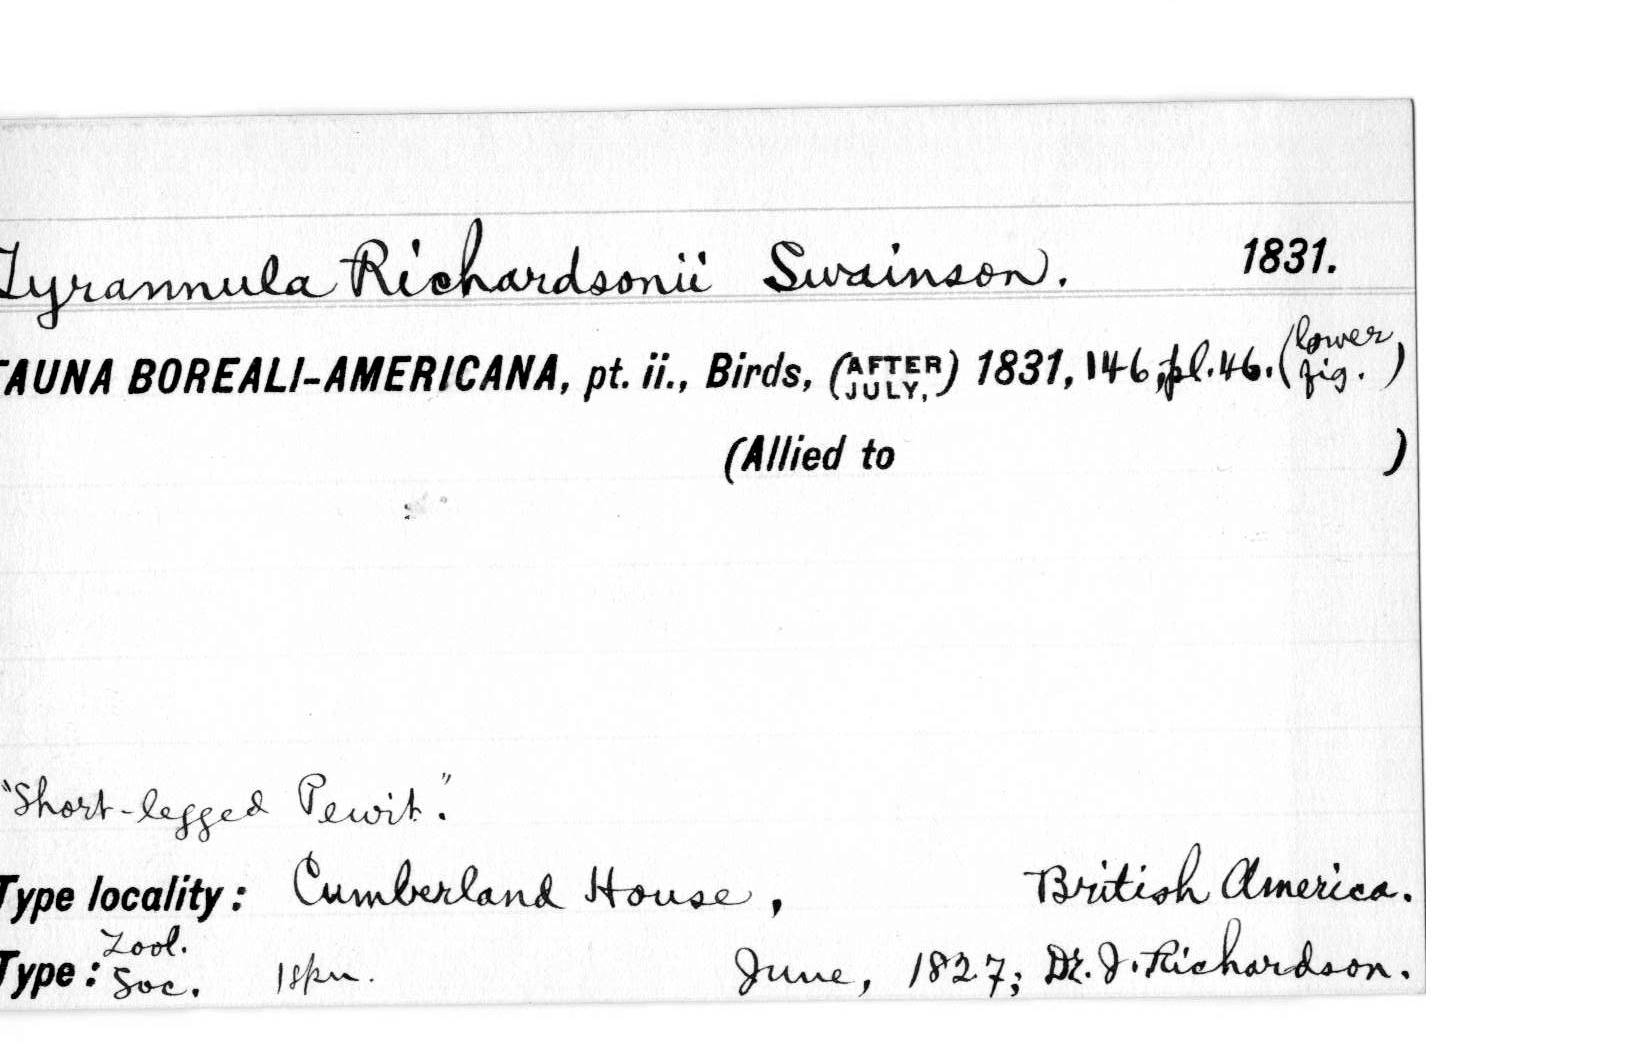 Tyrannula Richardsonii Swainson. 1831.
FAUNA BOREALI-AMERICANA, pt. ii., Birds, (AFTER JULY,) 1831, 146, pl. 46. (lower fig.)
(Allied to )
"Short-legged Pewit."
Type locality: Cumberland House, British America.
Type: Zool. Soc. 1 spn. June, 1827; Dr. J. Richardson.